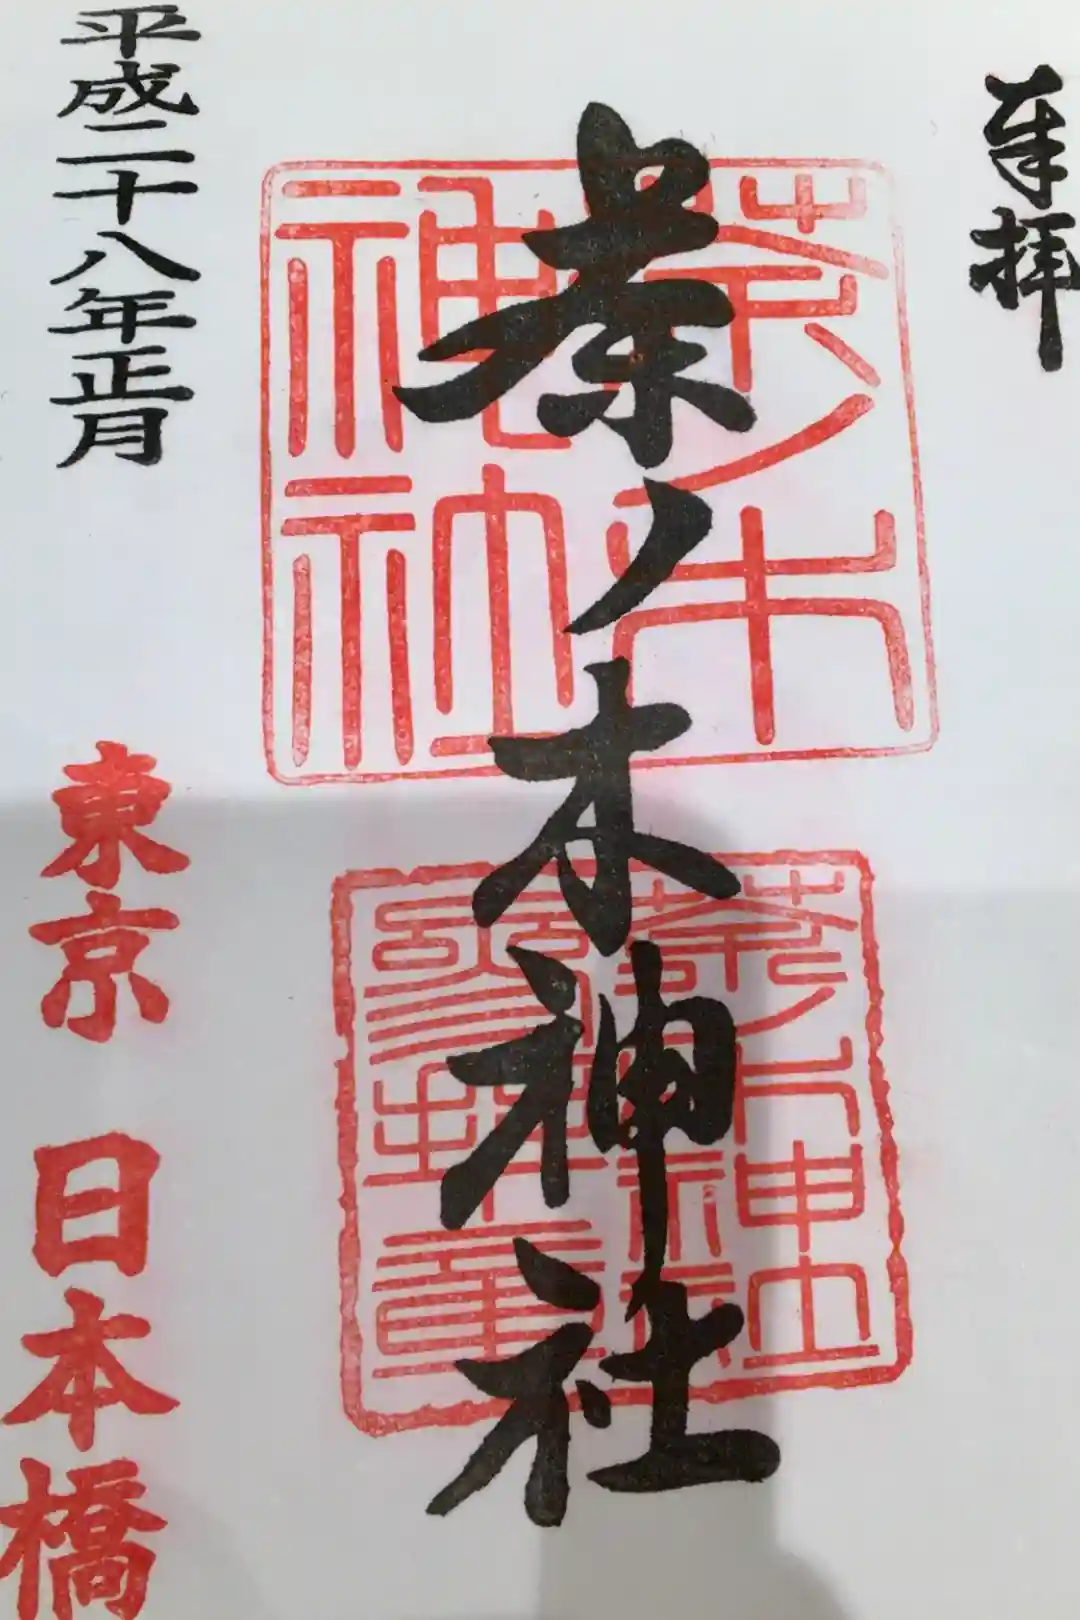 奉拝
茶ノ木神社
茶ノ木
神社
平成二十八年正月
東京 日本橋